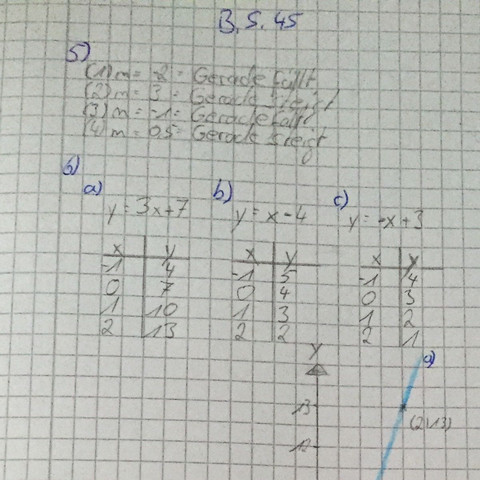 B. S. 45
5)
(1) m = -2 = Gerade fällt
(2) m = 3 = Gerade steigt
(3) m = -1 = Gerade fällt
(4) m = 0,5 = Gerade steigt
6)
a) b) c)
y = 3x+7 y = x-4 y = -x+3
x y x y x y
-1 4 -1 5 -1 4
0 7 0 4 0 3
1 10 1 3 1 2
2 13 2 2 2 1
y
a)
13
(2|13)
12